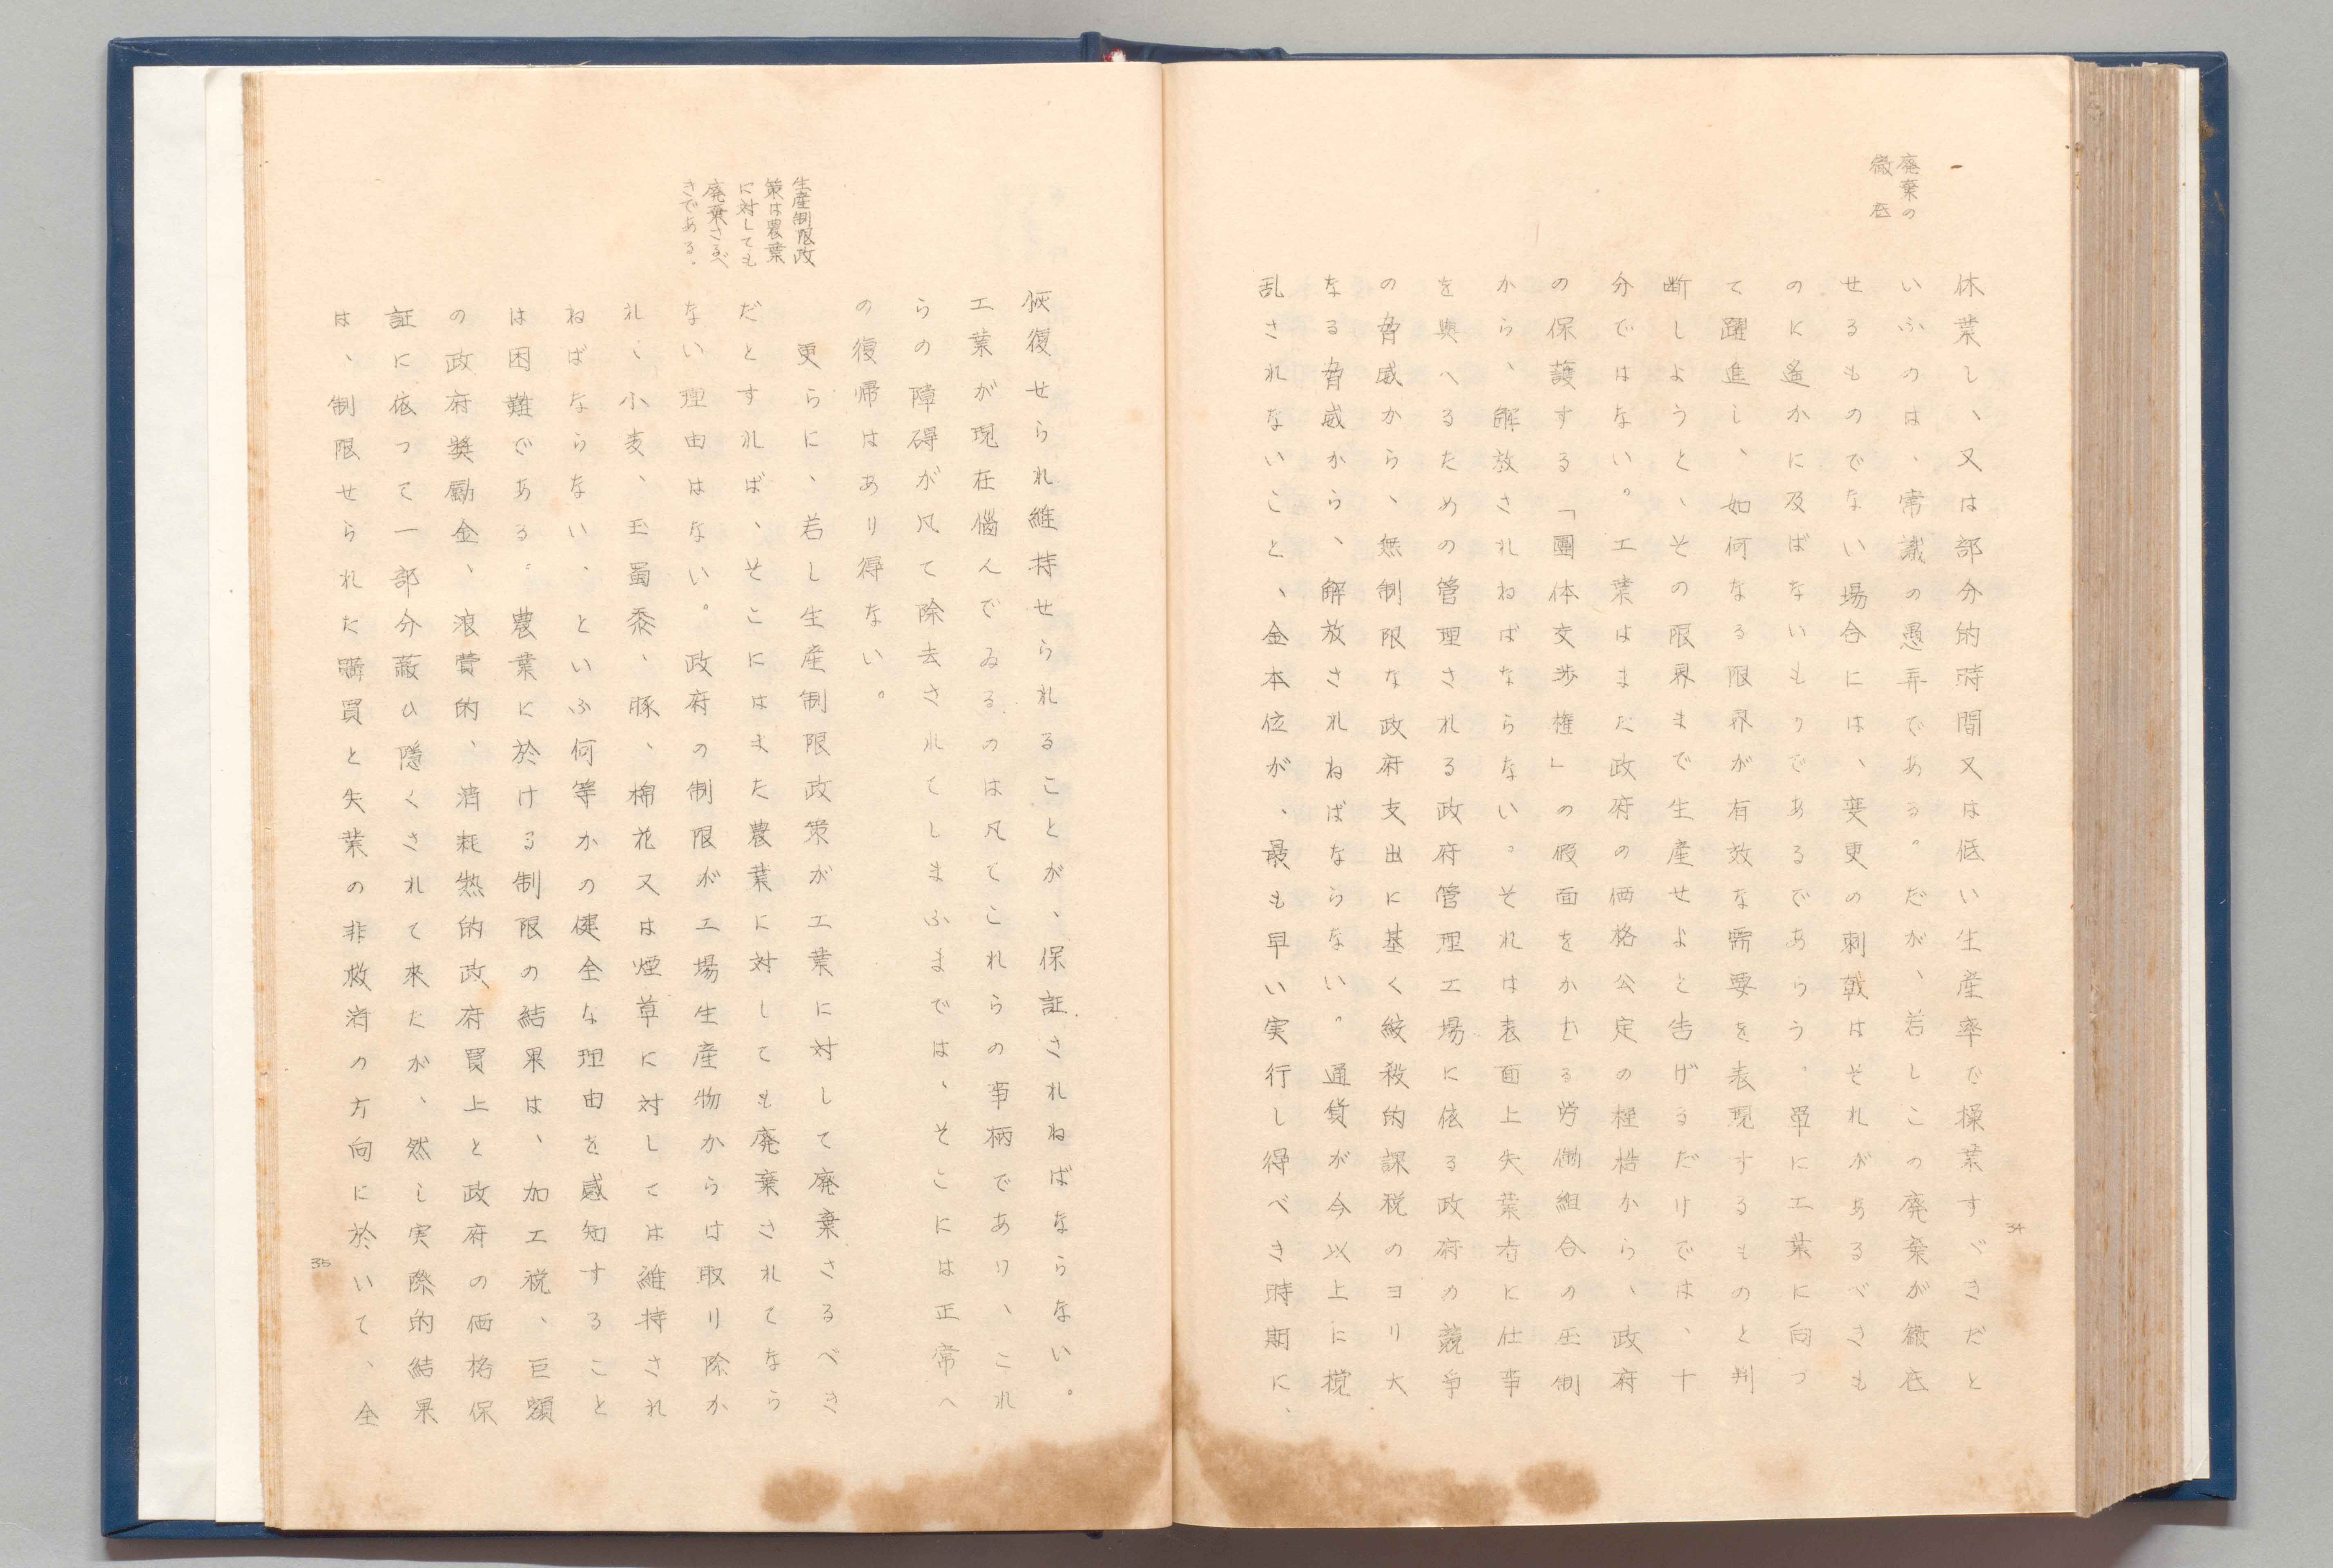 廃棄の
徹底
休業し、又は部分的時間又は低い生産率で操業すべきだと
いふのは、常識の愚弄である。だが、若しこの廃棄が徹底
せるものでない場合には、変更の刺戟はそれがあるべきも
のに遙かに及ばないものであるであらう。単に工業に向つ
て躍進し、如何なる限界が有効な需要を表現するものと判
断しようと、その限界まで生産せよと告げるだけでは、十
分ではない。工業はまだ政府の価格公定の桎梏から、政府
の保護する「團体交渉権」の仮面をかむる労働組合の圧制
から、解放されねばならない。それは表面上失業者に仕事
を與へるための管理される政府管理工場に依る政府の競争
の脅威から、無制限な政府支出に基く絞殺的課税のヨリ大
なる脅威から、解放されねばならない。通貨が今以上に撹
乱されないこと、金本位が、最も早い実行し得べき時期に、
34
恢復せられ維持せられることが、保証されねばならない。
工業が現在悩んでゐるのは凡てこれらの事柄であり、これ
らの障碍が凡て除去されてしまふまでは、そこには正常へ
の復帰はあり得ない。
生産制限政
策は農業
に対しても
廃棄さるべ
きである。
更らに、若し生産制限政策が工業に対して廃棄さるべき
だとすれば、そこにはまた農業に対しても廃棄されてなら
ない理由はない。政府の制限が工場生産物からは取り除か
れ、小麦、玉蜀黍、豚、棉花又は煙草に対しては維持され
ねばならない、といふ何等かの健全な理由を感知すること
は困難である。農業に於ける制限の結果は、加工税、巨額
の政府奨励金、浪費的、消耗熱的政府買上と政府の価格保
証に依つて一部分蔽ひ隠くされて来たが、然し実際的結果
は、制限せられた購買と失業の非救済の方向に於いて、全
35